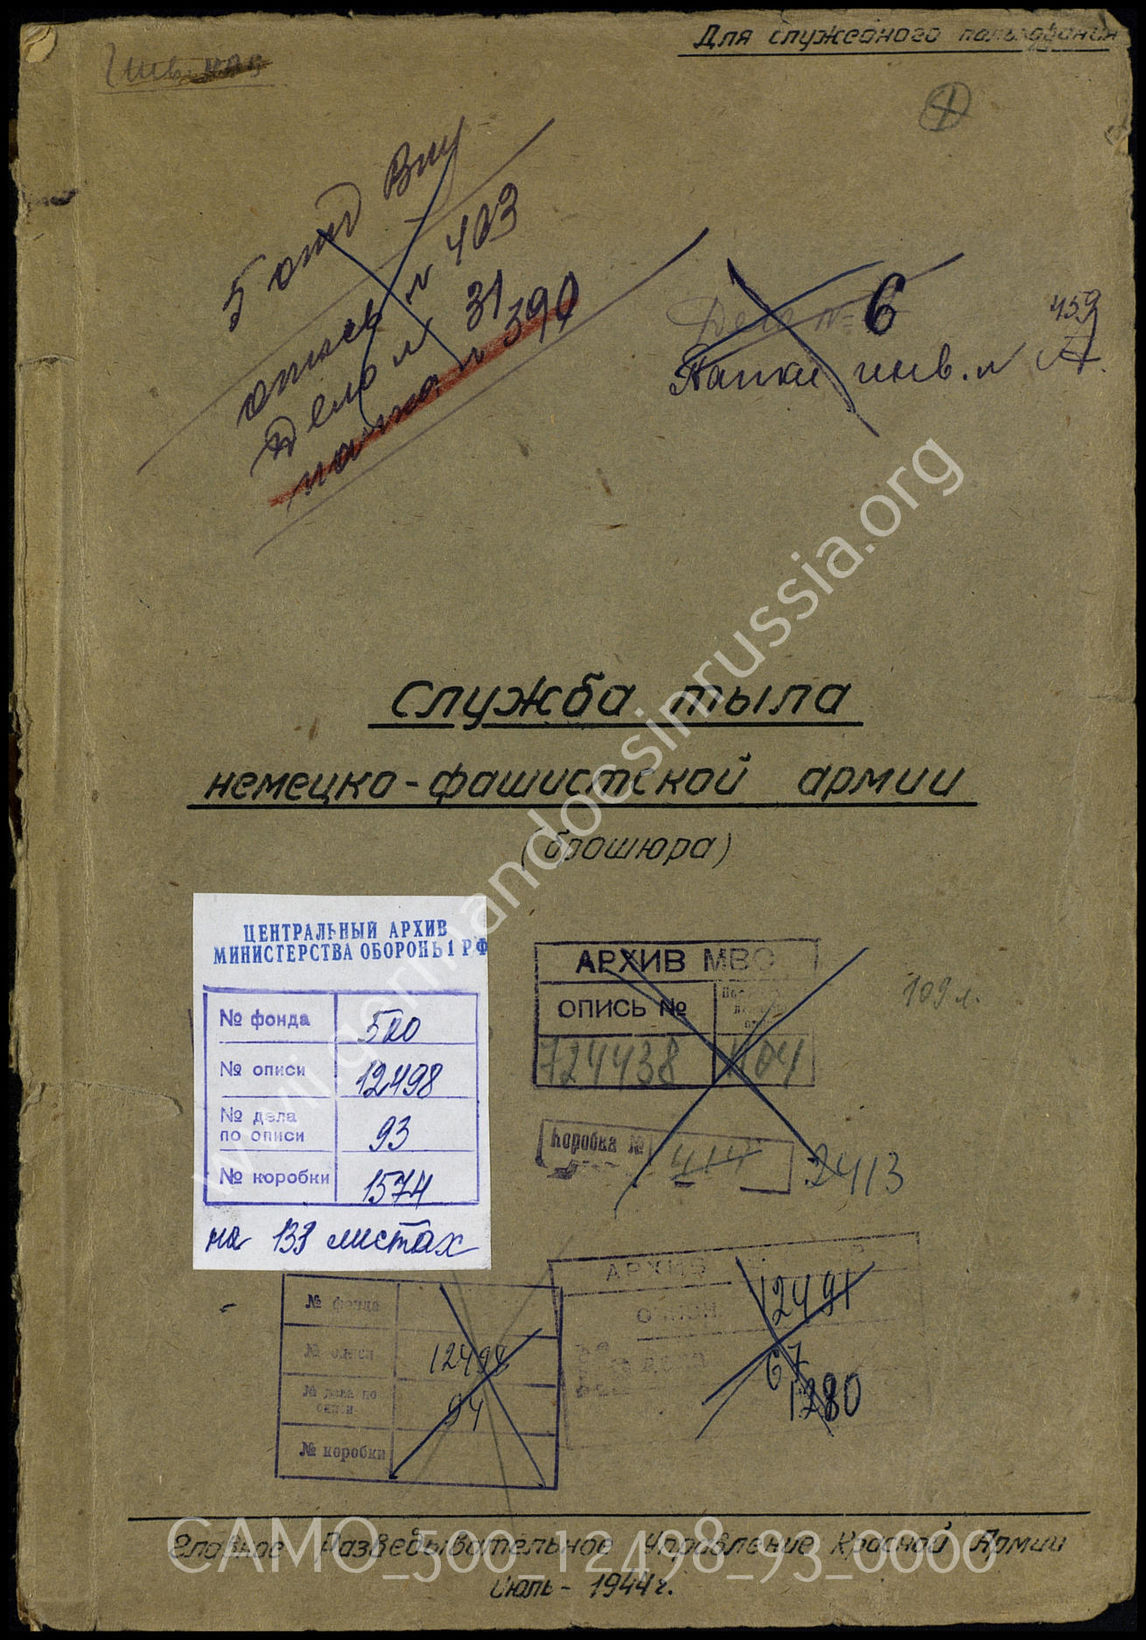 Для служебного пользования
5 отд Впу
опись № 403
Дело № 31
папка № 390
Дело № 6
Папка инв. № 459
Служба тыла
немецко-фашистской армии
(брошюра)
ЦЕНТРАЛЬНЫЙ АРХИВ
МИНИСТЕРСТВА ОБОРОНЫ РФ
№ фонда 500
№ описи 12498
№ дела по описи 93
№ коробки 1574
на 133 листах
АРХИВ МВО
ОПИСЬ №
724438 404
109 л.
Коробка № 414 2413
№ фонда
№ описи 12498
№ дела по описи 94
№ коробки
АРХИВ
12491
67
1280
Главное Разведывательное Управление Красной Армии
Июль - 1944 г.
www.germandocsinrussia.org
CAMO_500_12498_93_0000